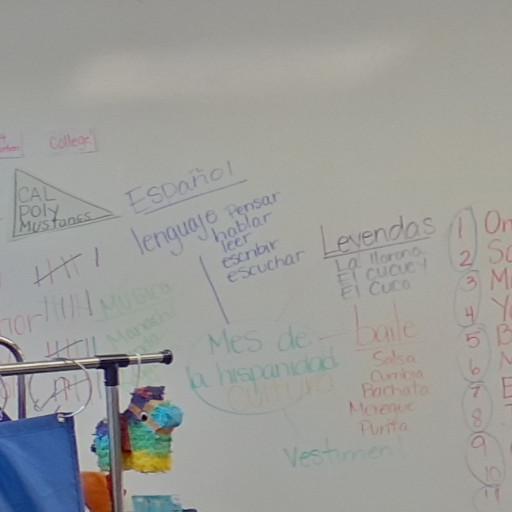 College
CAL
POLY
MUSTANGS
Español
lenguaje
Pensar
hablar
leer
escribir
escuchar
Leyendas
La llorona
El cucuy
El Cuco
Música
Mariachi
Mes de
la hispanidad
cultura
baile
Salsa
Cumbia
Bachata
Merengue
Punta
Vestimen
1
2
3
4
5
6
7
8
9
10
11